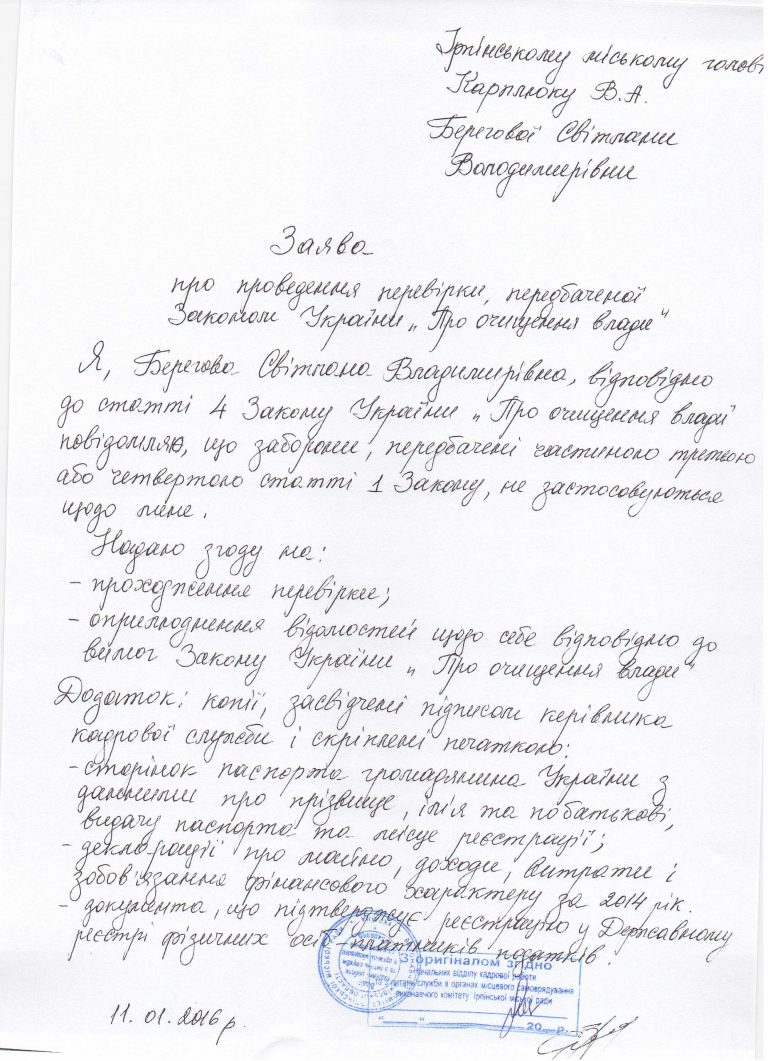 Ірпінському міському голові
Карплюку В.А.
Берегової Світлани
Володимирівни
Заява
про проведення перевірки, передбаченої
Законом України „Про очищення влади"
Я, Берегова Світлана Владимирівна, відповідно
до статті 4 Закону України „Про очищення влади"
повідомляю, що заборони, передбачені частиною третьою
або четвертою статті 1 Закону, не застосовуються
щодо мене.
Надаю згоду на:
- проходження перевірки;
- оприлюднення відомостей щодо себе відповідно до
вимог Закону України „Про очищення влади"
Додаток: копії, засвідчені підписом керівника
кадрової служби і скріплені печаткою:
- сторінок паспорта громадянина України з
данними про прізвище, ім'я та по батькові,
видачу паспорта та місце реєстрації;
- декларації про майно, доходи, витрати і
зобов'язання фінансового характеру за 2014 рік.
- документа, що підтверджує реєстрацію у Державному
реєстрі фізичних осіб-платників податків.
З оригіналом згідно
начальник відділу кадрової роботи
та з питань служби в органах місцевого самоврядування
виконавчого комітету Ірпінської міської ради
20 р.
11.01.2016 р.